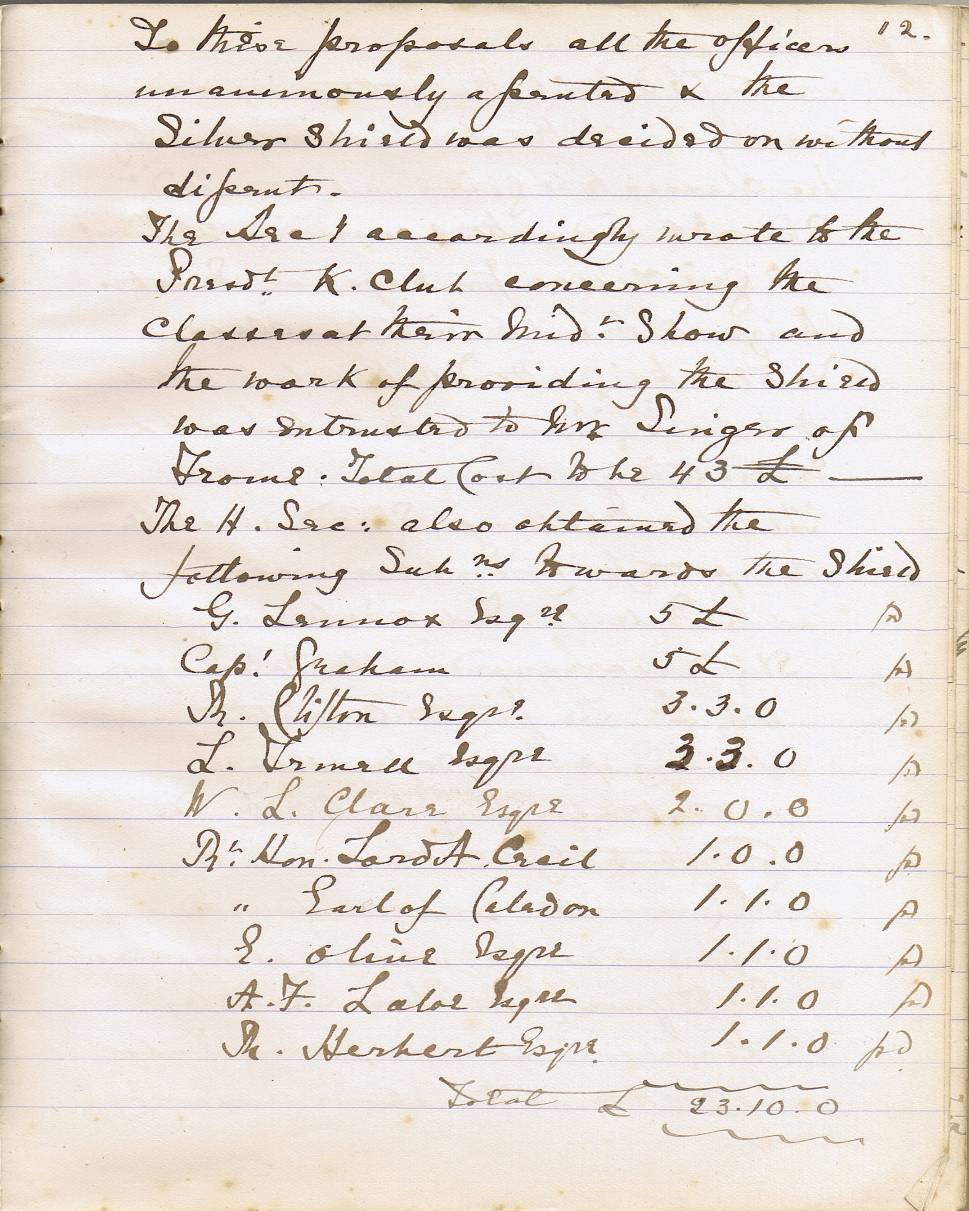 12.
To these proposals all the officers
unanimously assented & the
Silver Shield was decided on without
dissent.
The Secy accordingly wrote to the
Presdt K. Club concerning the
Classes at their Midr Show and
the work of providing the Shield
was entrusted to Mr Singer of
Frome. Total Cost to be 43 £ —
The H. Sec: also obtained the
following Subns towards the Shield
G. Lennox Esqre 5 £ pd
Capt Graham 5 £ pd
R. Clifton Esqre 3.3.0 pd
L. Esqre 3.3.0 pd
W. L. Clare Esqre 2.0.0 pd
Rt Hon. Lord A. Cecil 1.0.0 pd
" Earl of Caledon 1.1.0 pd
E. Esqre 1.1.0 pd
A. F. Esqre 1.1.0 pd
R. Herbert Esqre 1.1.0 pd
Total £ 23.10.0